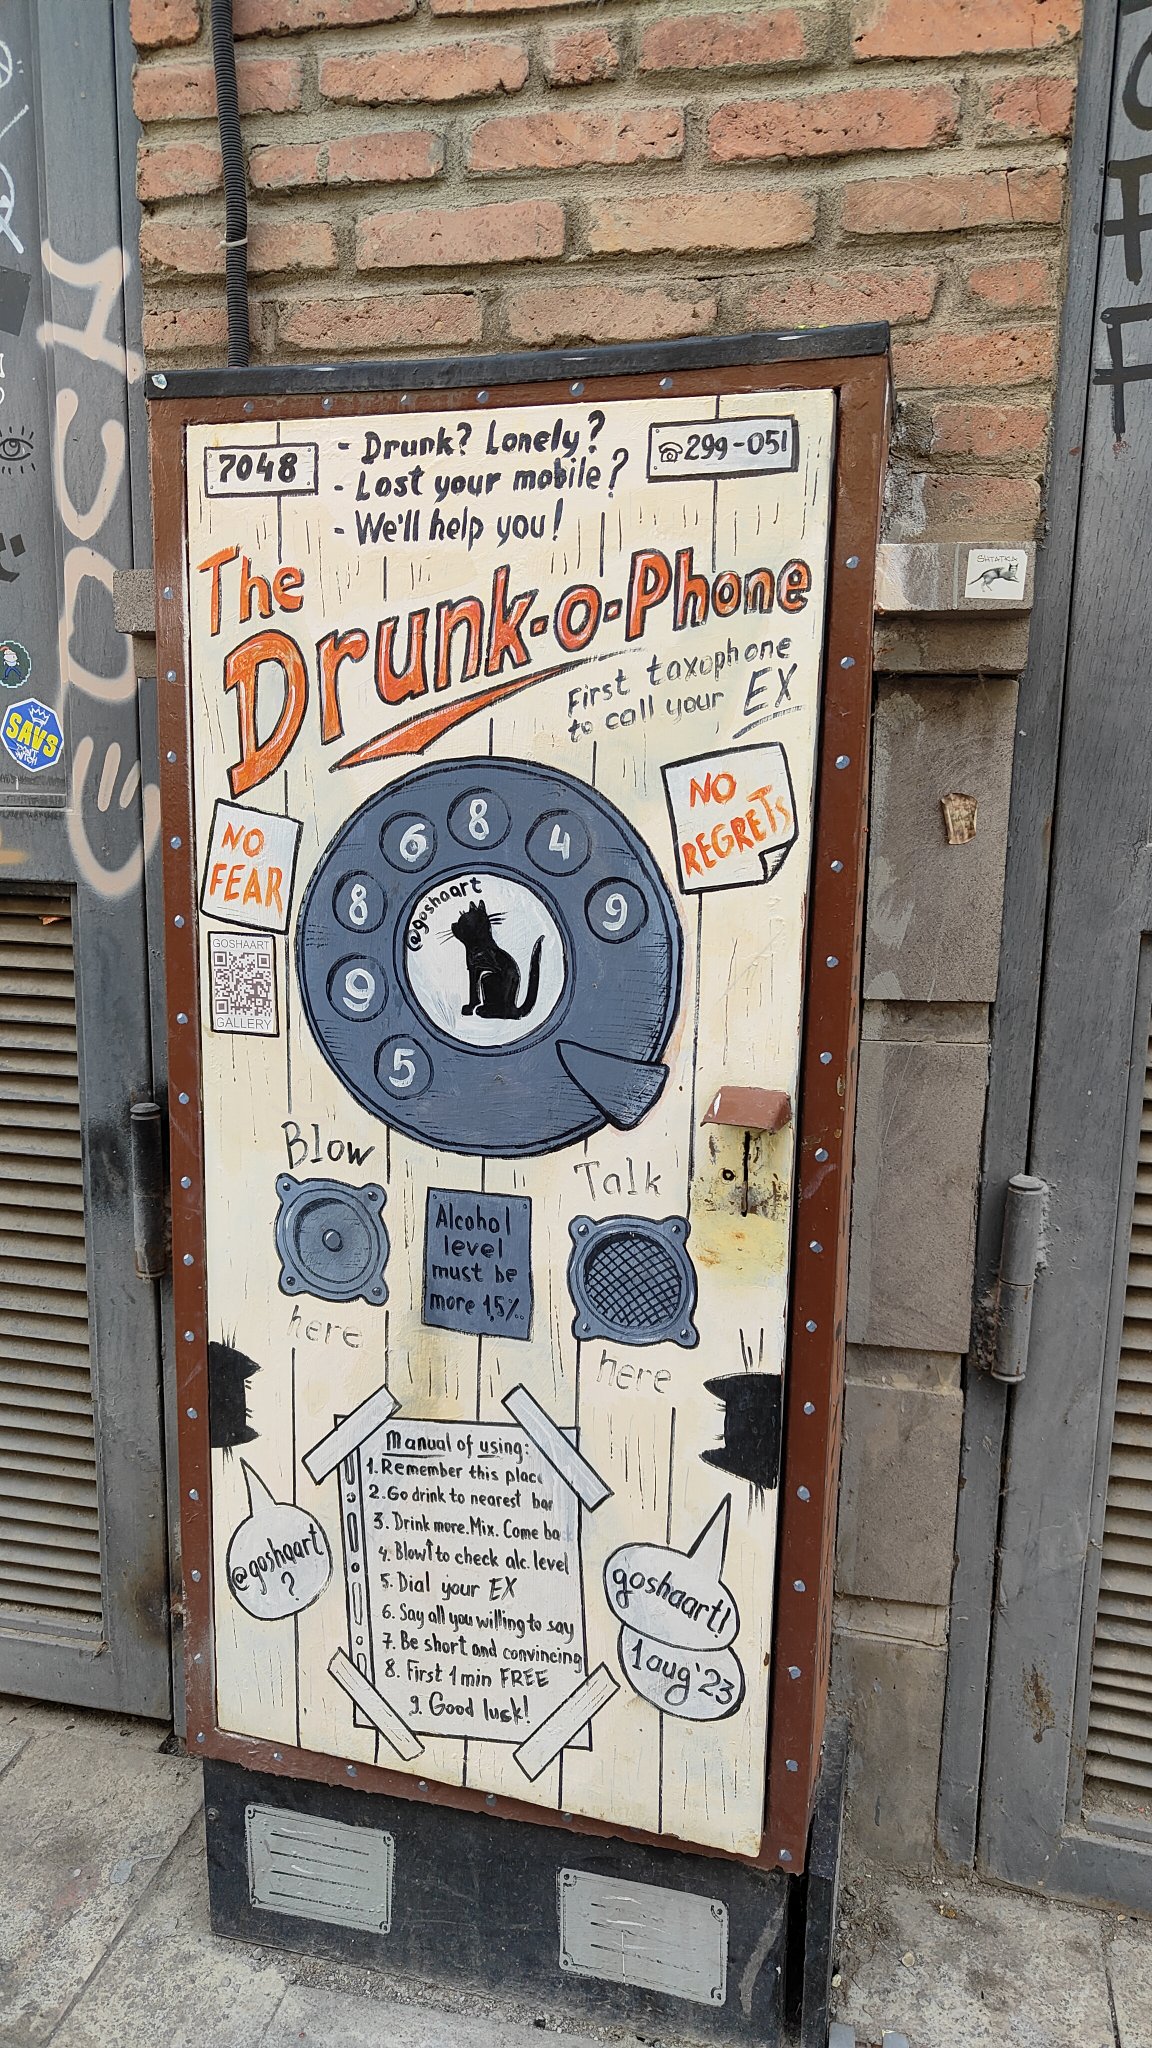 7048
- Drunk? Lonely?
- Lost your mobile?
- We'll help you!
☎299-051
The
Drunk-o-Phone
First taxophone
to call your EX
NO
FEAR
NO
REGRETS
GOSHAART
GALLERY
9
4
8
6
8
9
5
@goshaart
Blow
here
Alcohol
level
must be
more 1,5%.
Talk
here
Manual of using:
1. Remember this place
2. Go drink to nearest bar
3. Drink more. Mix. Come ba
4. Blow↑ to check alc. level
5. Dial your EX
6. Say all you willing to say
7. Be short and convincing
8. First 1 min FREE
9. Good lusk!
@goshaart
?
goshaart!
1 aug'23
SAVS
SHTATKA